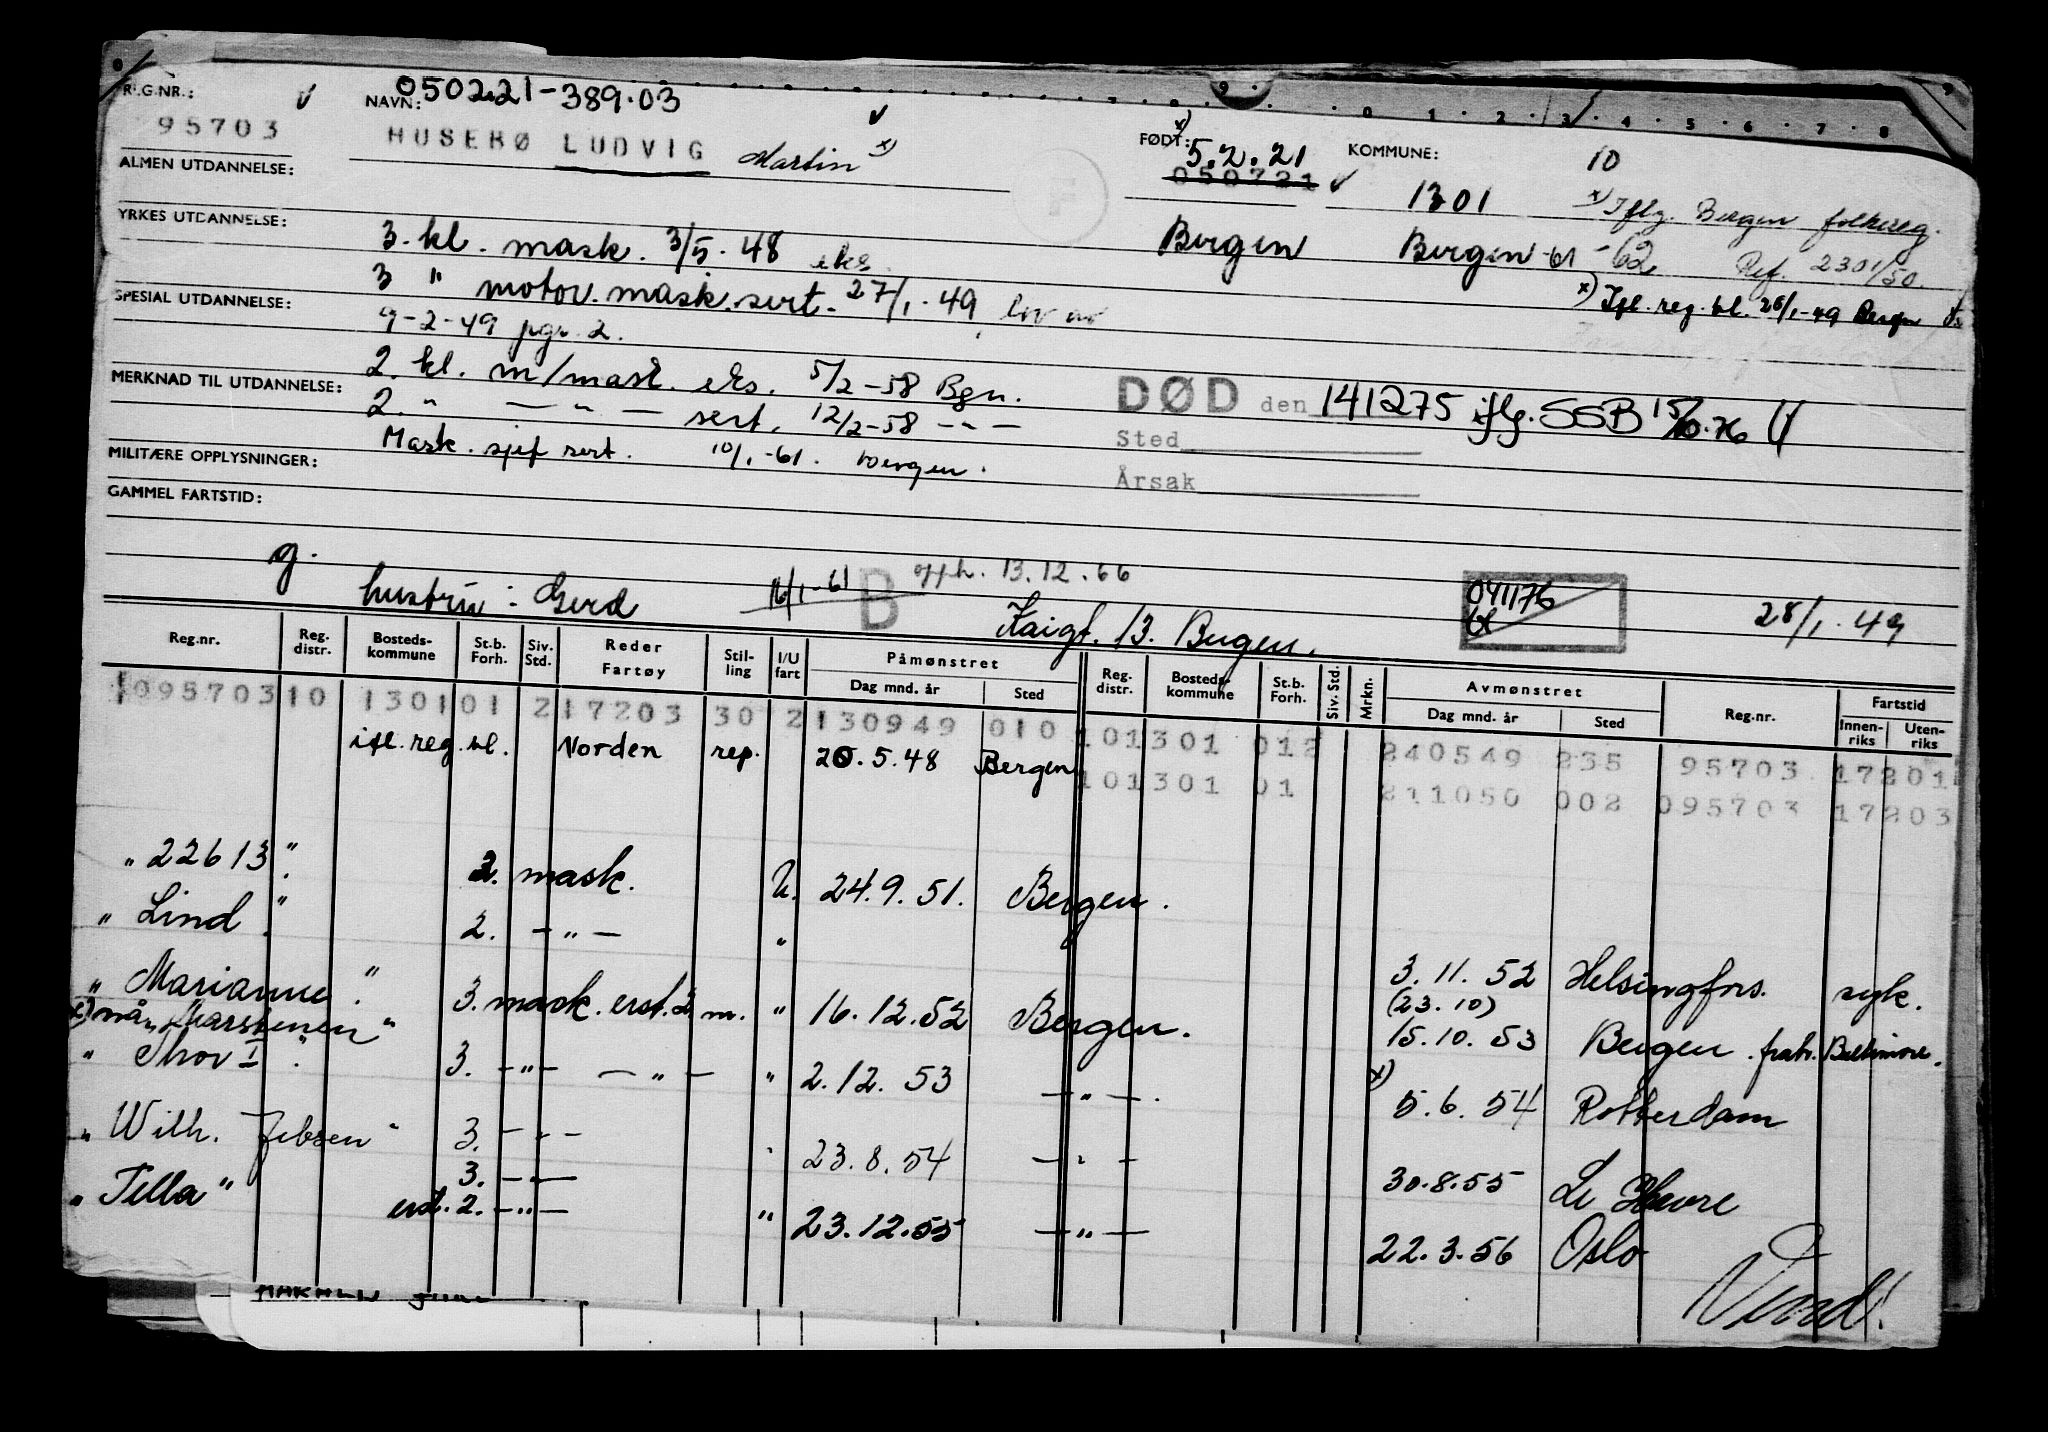 REG.NR.: NAVN: 050221-389.03
95703 HUSEBØ LUDVIG Martin x) FØDT: x) 5.2.21 KOMMUNE: 10
ALMEN UTDANNELSE: 050721 1301 x) Iflg. Bergen folkereg.
YRKES UTDANNELSE: 3. kl. mask. 3/5.48 eks. Bergen Bergen -61 -62 Ref. 2301/50.
3 " motor.mask.sert. 27/1.-49 lov av x) Ifl. reg.bl. 28/1-49
SPESIAL UTDANNELSE: 9-2-49 pgr. 2.
2. kl. m/mask. eks. 5/2-58 Bgn.
MERKNAD TIL UTDANNELSE: 2. " — " — sert. 12/2-58 - " - DØD den 141275 iflg. SSB 15/10.76
Mask. sjef sert. 10/1-61. Bergen. Sted
MILITÆRE OPPLYSNINGER: Årsak
GAMMEL FARTSTID:
g. hustru: Gerd 16/1-61 B opph. 13.12.66 041176
Kaigt. 13. Bergen. 28/1.49
Reg.nr. Reg. distr. Bosteds-kommune St.b. Forh. Siv. Std. Reder Fartøy Stilling I/U fart Påmønstret Dag mnd. år Sted Reg. distr. Bosteds-kommune St.b. Forh. Siv. Std. Mrkn. Avmønstret Dag mnd. år Sted Reg.nr. Fartstid Innen-riks Uten-riks
109570310 130101 217203 30 2130949 010 101301 012 240549 235 95703 17201
ifl. reg.bl. Norden rep. 20.5.48 Bergen 101301 01 211050 002 095703 17203
"22613" 2. mask. U. 24.9.51. Bergen.
"Lind" 2. — " — "
"Marianne" 3. mask. erst. 2 m. " 16.12.52 Bergen. 3.11.52 (23.10) Helsingfors. syk.
x) nå "Marstenen" 15.10.53 Bergen. fratr. Baltimore.
"Thor I" 3. - " - — " — " 2.12.53 — " — . x) 5.6.54 Rotterdam
"Wilh. Jebsen" 3. - " - 23.8.54 — " — 30.8.55 Le Havre
"Tella" 3. - " -
erst. 2. - " - " 23.12.55 — " — 22.3.56 Oslo
Vend!